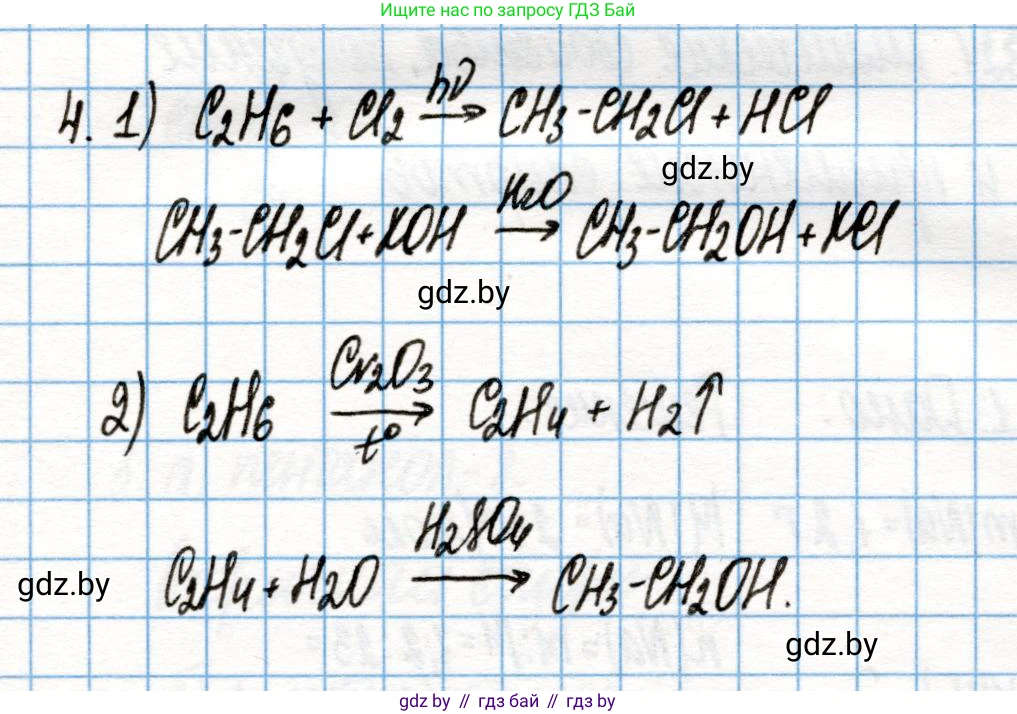 Ищите нас по запросу ГДЗ Бай
4. 1) C2H6 + Cl2 hν→ CH3-CH2Cl + HCl
gdz.by
CH3-CH2Cl + KOH H2O→ CH3-CH2OH + KCl
gdz.by
2) C2H6 Cr2O3→t° C2H4 + H2↑
C2H4 + H2O H2SO4→ CH3-CH2OH.
gdz.by
gdz.by
gdz.by // гдз бай // gdz.by